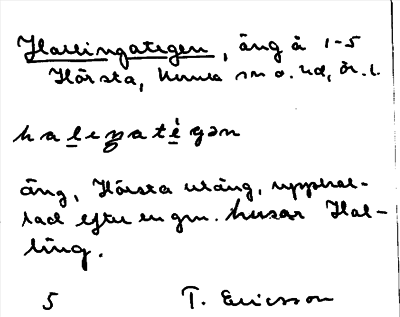 Hallingategen, äng å 1-5
Hårsta, Kumla sn o. hd, Ör. l.
halengatègen
äng, Hårsta utäng, uppkal-
lad efter en gm. husar Hal-
ling.
5 T. Ericsson